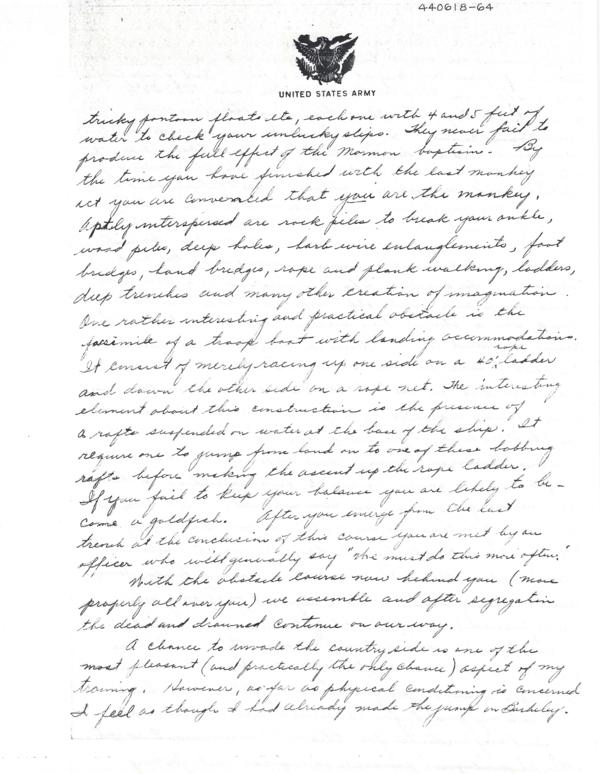 440618-64
UNITED STATES ARMY
tricky pontoon floats etc, each one with 4 and 5 feet of
water to check your unlucky slips. They never fail to
produce the full effect of the Mormon baptism. By
the time you have finished with the last monkey
act you are convinced that you are the monkey.
Aptly interspersed are rock piles to break your ankle,
wood piles, deep holes, barb wire entanglements, foot
bridges, hand bridges, rope and plank walking, ladders,
deep trenches and many other creation of imagination.
One rather interesting and practical obstacle is the
facsimile of a troop boat with landing accommodations.
It consist of merely racing up one side on a 40' rope ladder
and down the other side on a rope net. The interesting
element about this construction is the presence of
a rafts suspended on water at the base of the ship. It
require one to jump from land on to one of these bobbing
rafts before making the ascent up the rope ladder.
If you fail to keep your balance you are likely to be-
come a goldfish. After you emerge from the last
trench at the conclusion of this course you are met by an
officer who will generally say "We must do this more often."
With the obstacle course now behind you (more
properly all over you) we assemble and after segregatin
the dead and drowned continue on our way.
A chance to invade the country side is one of the
most pleasant (and practically the only chance) aspect of my
training. However, as far as physical conditioning is concerned
I feel as though I had already made the jump on Berkeley.